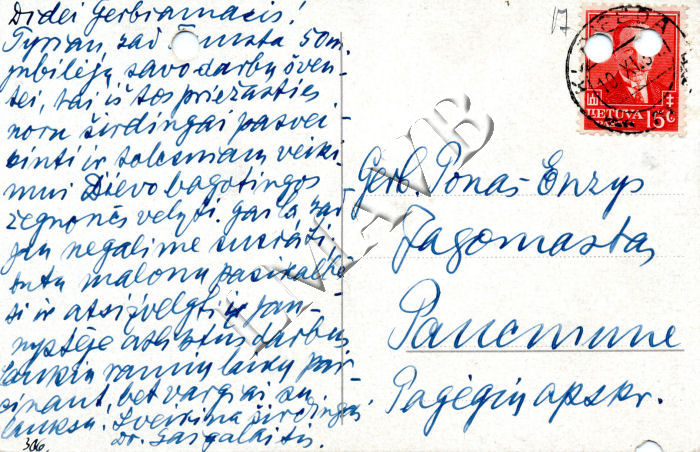 Didei Gerbiamasis!
Tyrian, kad Tamsta 50 m.
jubilėjų savo darbų šven-
tei, tai iš tos priežasties
noru širdingai pasvei-
kinti ir tolesniam veiki-
mui Dievo bagotingos
žegnonės velyti. Gaila, kad
jau negalime susrasti,
antų malonu pasikalbė-
ti ir atsižvelgti į jau-
nystėje atliktus darbus
laukiu ramių laikų par-
einant, bet vargiai su-
lauksu. Sveikina širdingai
Dr. Gaigalaitis.
306.
17
KLAIPĖDA
10. XI. 3
LIETUVA 15 C
Gerb. Ponas Enzys
Jagomastas
Panemune
Pagėgių apskr.
LMAVB